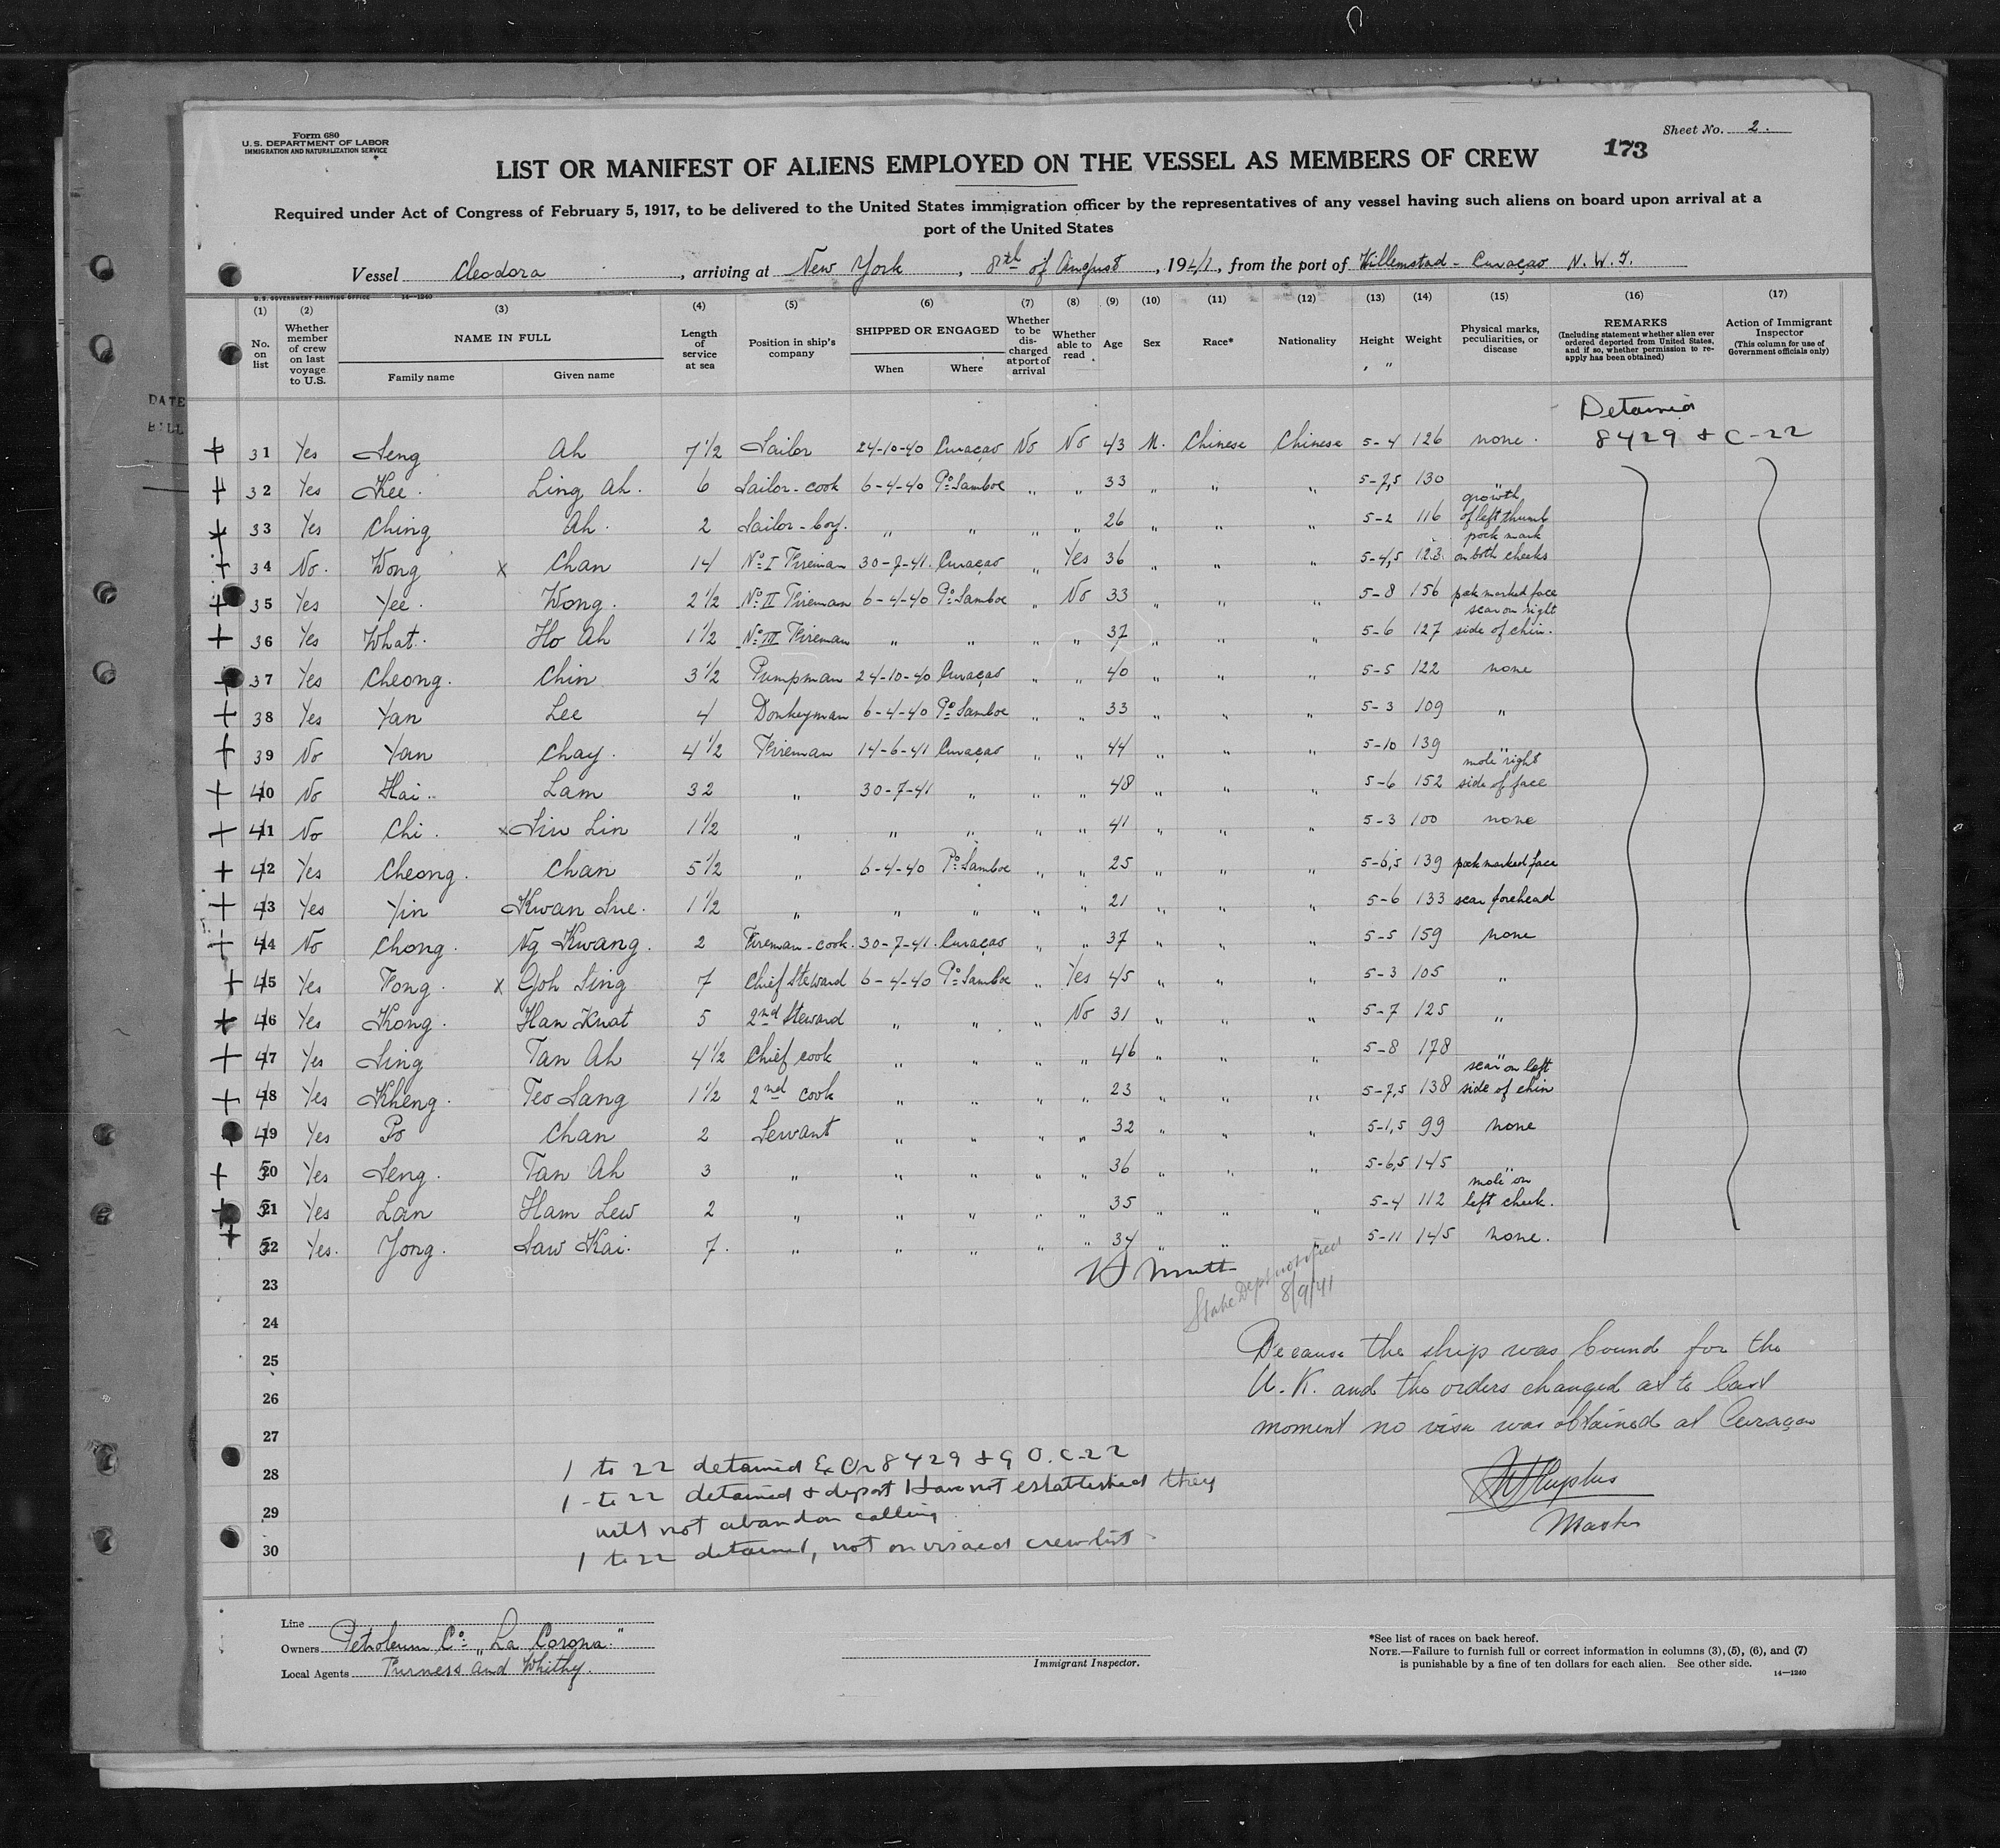 Form 680
U. S. DEPARTMENT OF LABOR
IMMIGRATION AND NATURALIZATION SERVICE
Sheet No. 2.
173
LIST OR MANIFEST OF ALIENS EMPLOYED ON THE VESSEL AS MEMBERS OF CREW
Required under Act of Congress of February 5, 1917, to be delivered to the United States immigration officer by the representatives of any vessel having such aliens on board upon arrival at a
port of the United States
Vessel Cleodora, arriving at New York, 8th of August, 1941, from the port of Willemstad - Curaçao N. W. I.
U. S. GOVERNMENT PRINTING OFFICE 14—1240
(1) (2) (3) (4) (5) (6) (7) (8) (9) (10) (11) (12) (13) (14) (15) (16) (17)
No. on list
Whether member of crew on last voyage to U. S.
NAME IN FULL
Family name
Given name
Length of service at sea
Position in ship's company
SHIPPED OR ENGAGED
When
Where
Whether to be discharged at port of arrival
Whether able to read
Age
Sex
Race*
Nationality
Height
Weight
Physical marks, peculiarities, or disease
REMARKS
(Including statement whether alien ever ordered deported from United States, and if so, whether permission to reapply has been obtained)
Action of Immigrant Inspector
(This column for use of Government officials only)
DATE
BILL
Detained
8429 & C-22
+ 31 Yes Seng Ah 7 1/2 Sailor 24-10-40 Curaçao No No 43 M. Chinese Chinese 5-4 126 none.
+ 32 Yes Kee. Ling Ah. 6 Sailor-cook 6-4-40 Po Samboe " " 33 " " " 5-7,5 130 "
+ 33 Yes Ching Ah. 2 Sailor-boy. " " " " 26 " " " 5-2 116 growth of left thumb
+ 34 No. Wong x Chan 14 No I Fireman 30-7-41. Curaçao " Yes 36 " " " 5-4,5 123 pock mark on both cheeks
+ 35 Yes Yee. Wong. 2 1/2 No II Fireman 6-4-40 Po Samboe " No 33 " " " 5-8 156 pock marked face
+ 36 Yes What. Ho Ah 1 1/2 No III Fireman " " " " 37 " " " 5-6 127 scar on right side of chin.
+ 37 Yes Cheong. Chin 3 1/2 Pumpman 24-10-40 Curaçao " " 40 " " " 5-5 122 none
+ 38 Yes Yan Lee 4 Donkeyman 6-4-40 Po Samboe " " 33 " " " 5-3 109 "
+ 39 No Yan Chay. 4 1/2 Fireman 14-6-41 Curaçao " " 44 " " " 5-10 139 "
+ 40 No Hai. Lam 32 " 30-7-41 " " " 48 " " " 5-6 152 mole right side of face
+ 41 No Chi. x Siu Lin 1 1/2 " " " " " 41 " " " 5-3 100 none
+ 42 Yes Cheong. Chan 5 1/2 " 6-4-40 Po Samboe " " 25 " " " 5-6,5 139 pock marked face
+ 43 Yes Yin Kwan Sue. 1 1/2 " " " " " 21 " " " 5-6 133 scar forehead
+ 44 No Chong. Ng Kwang. 2 Fireman-cook. 30-7-41. Curaçao " " 37 " " " 5-5 159 none
+ 45 Yes Fong. x Goh Sing 7 Chief Steward 6-4-40 Po Samboe " Yes 45 " " " 5-3 105 "
+ 46 Yes Kong. Han Kuat 5 2nd Steward " " " No 31 " " " 5-7 125 "
+ 47 Yes Sing Tan Ah 4 1/2 Chief cook " " " " 46 " " " 5-8 178 "
+ 48 Yes Kheng. Teo Sang 1 1/2 2nd cook " " " " 23 " " " 5-7,5 138 scar on left side of chin
49 Yes Po Chan 2 Servant " " " " 32 " " " 5-1,5 99 none
+ 50 Yes Seng. Tan Ah 3 " " " " " 36 " " " 5-6,5 145 "
+ 51 Yes Lan Ham Lew 2 " " " " " 35 " " " 5-4 112 mole on left cheek.
+ 52 Yes. Yong. Saw Kai. 7. " " " " " 34 " " " 5-11 145 none.
23
State Dept notified
8/9/41
24
25
26
27
28
29
30
Because the ship was bound for the
U. K. and the orders changed at te last
moment no visa was obtained at Curaçao
Master
1 to 22 detained Ex Or 8429 & G O. C-22
1 - to 22 detained & deport Have not established they
will not abandon calling.
1 to 22 detained, not on visaed crewlist
Line
Owners Petroleum Co: "La Corona"
Local Agents Furness and Whithy.
Immigrant Inspector.
*See list of races on back hereof.
NOTE.—Failure to furnish full or correct information in columns (3), (5), (6), and (7)
is punishable by a fine of ten dollars for each alien. See other side.
14—1240